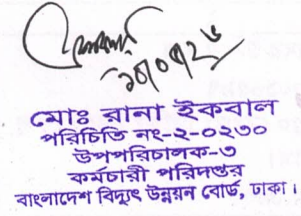 মোঃ রানা ইকবাল
পরিচিতি নং-২-০২৩০
উপপরিচালক-৩
কর্মচারী পরিদপ্তর
বাংলাদেশ বিদ্যুৎ উন্নয়ন বোর্ড, ঢাকা।